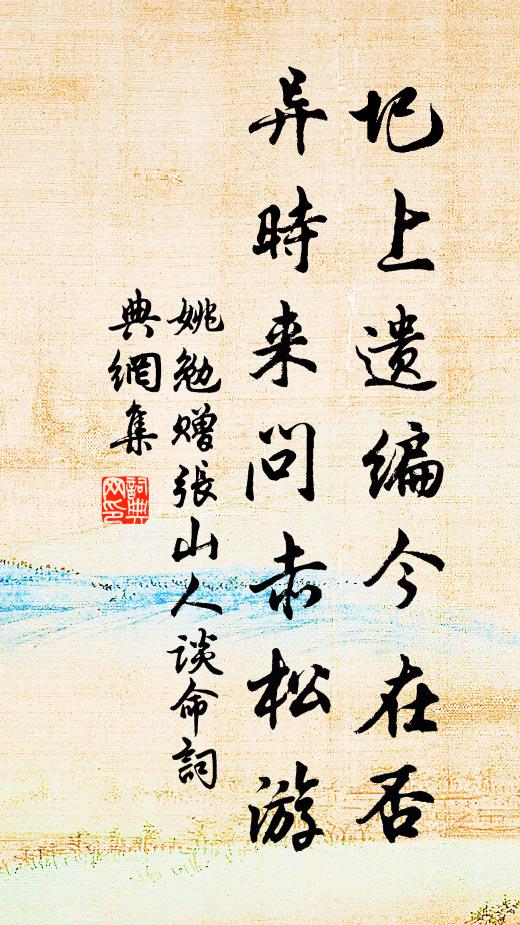 圯上遗编今在否
异時来问赤松游
姚勉赠張山人谈命詞
典網集
詞典網印